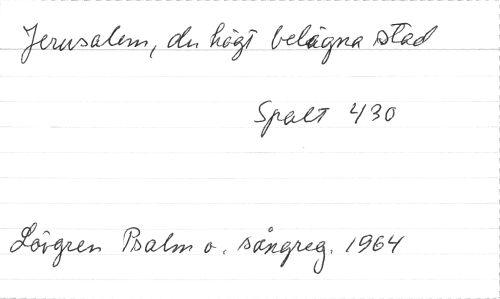 Jerusalem, du högt belägna stad
Spalt 430
Lövgren Psalm o. sångreg. 1964